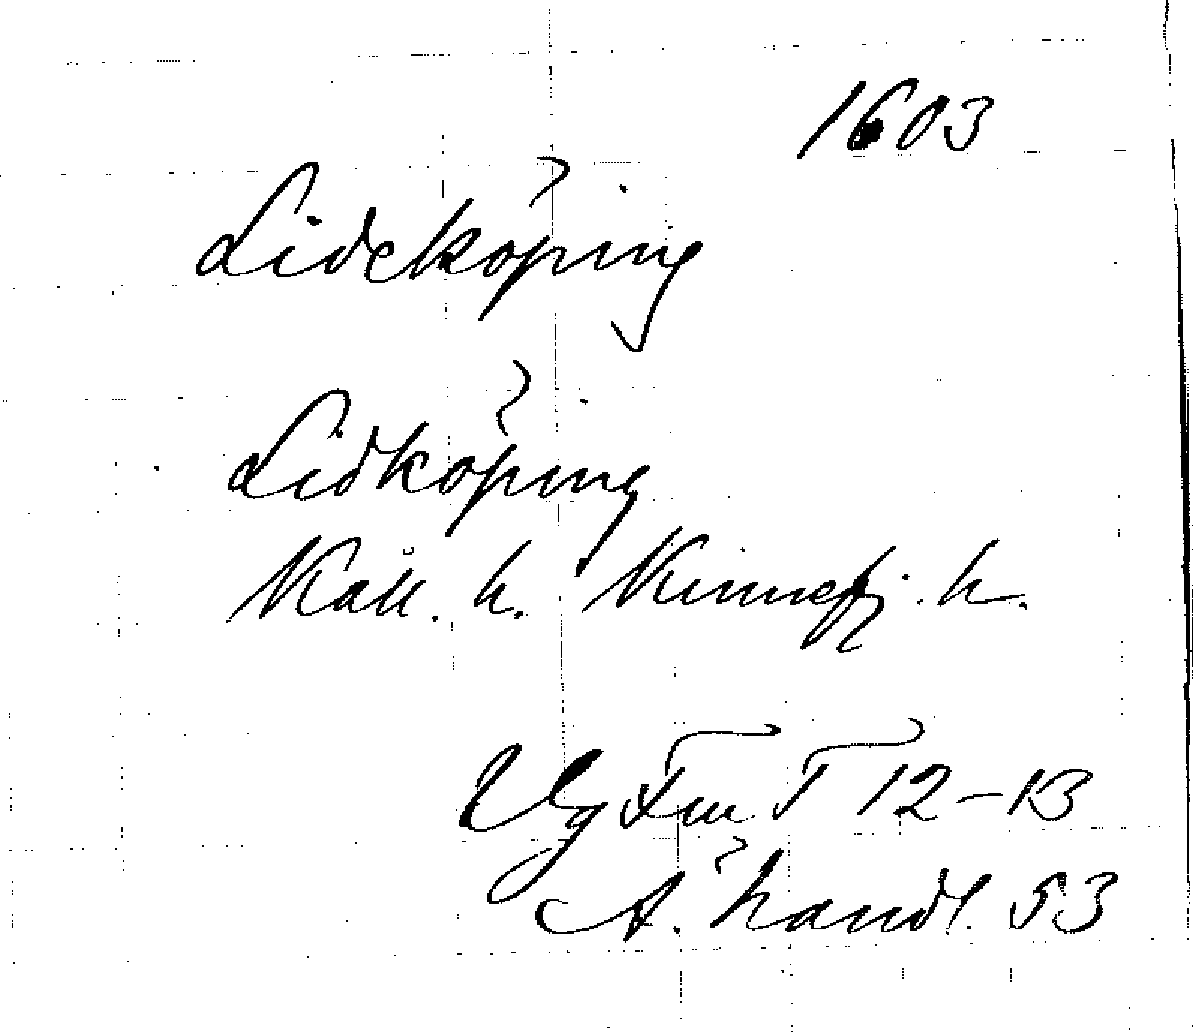 1603
Lideköping
Lidköping
Kåll. h. Kinnefj. h.
Vg Fm T 12-13
A. handl. 53